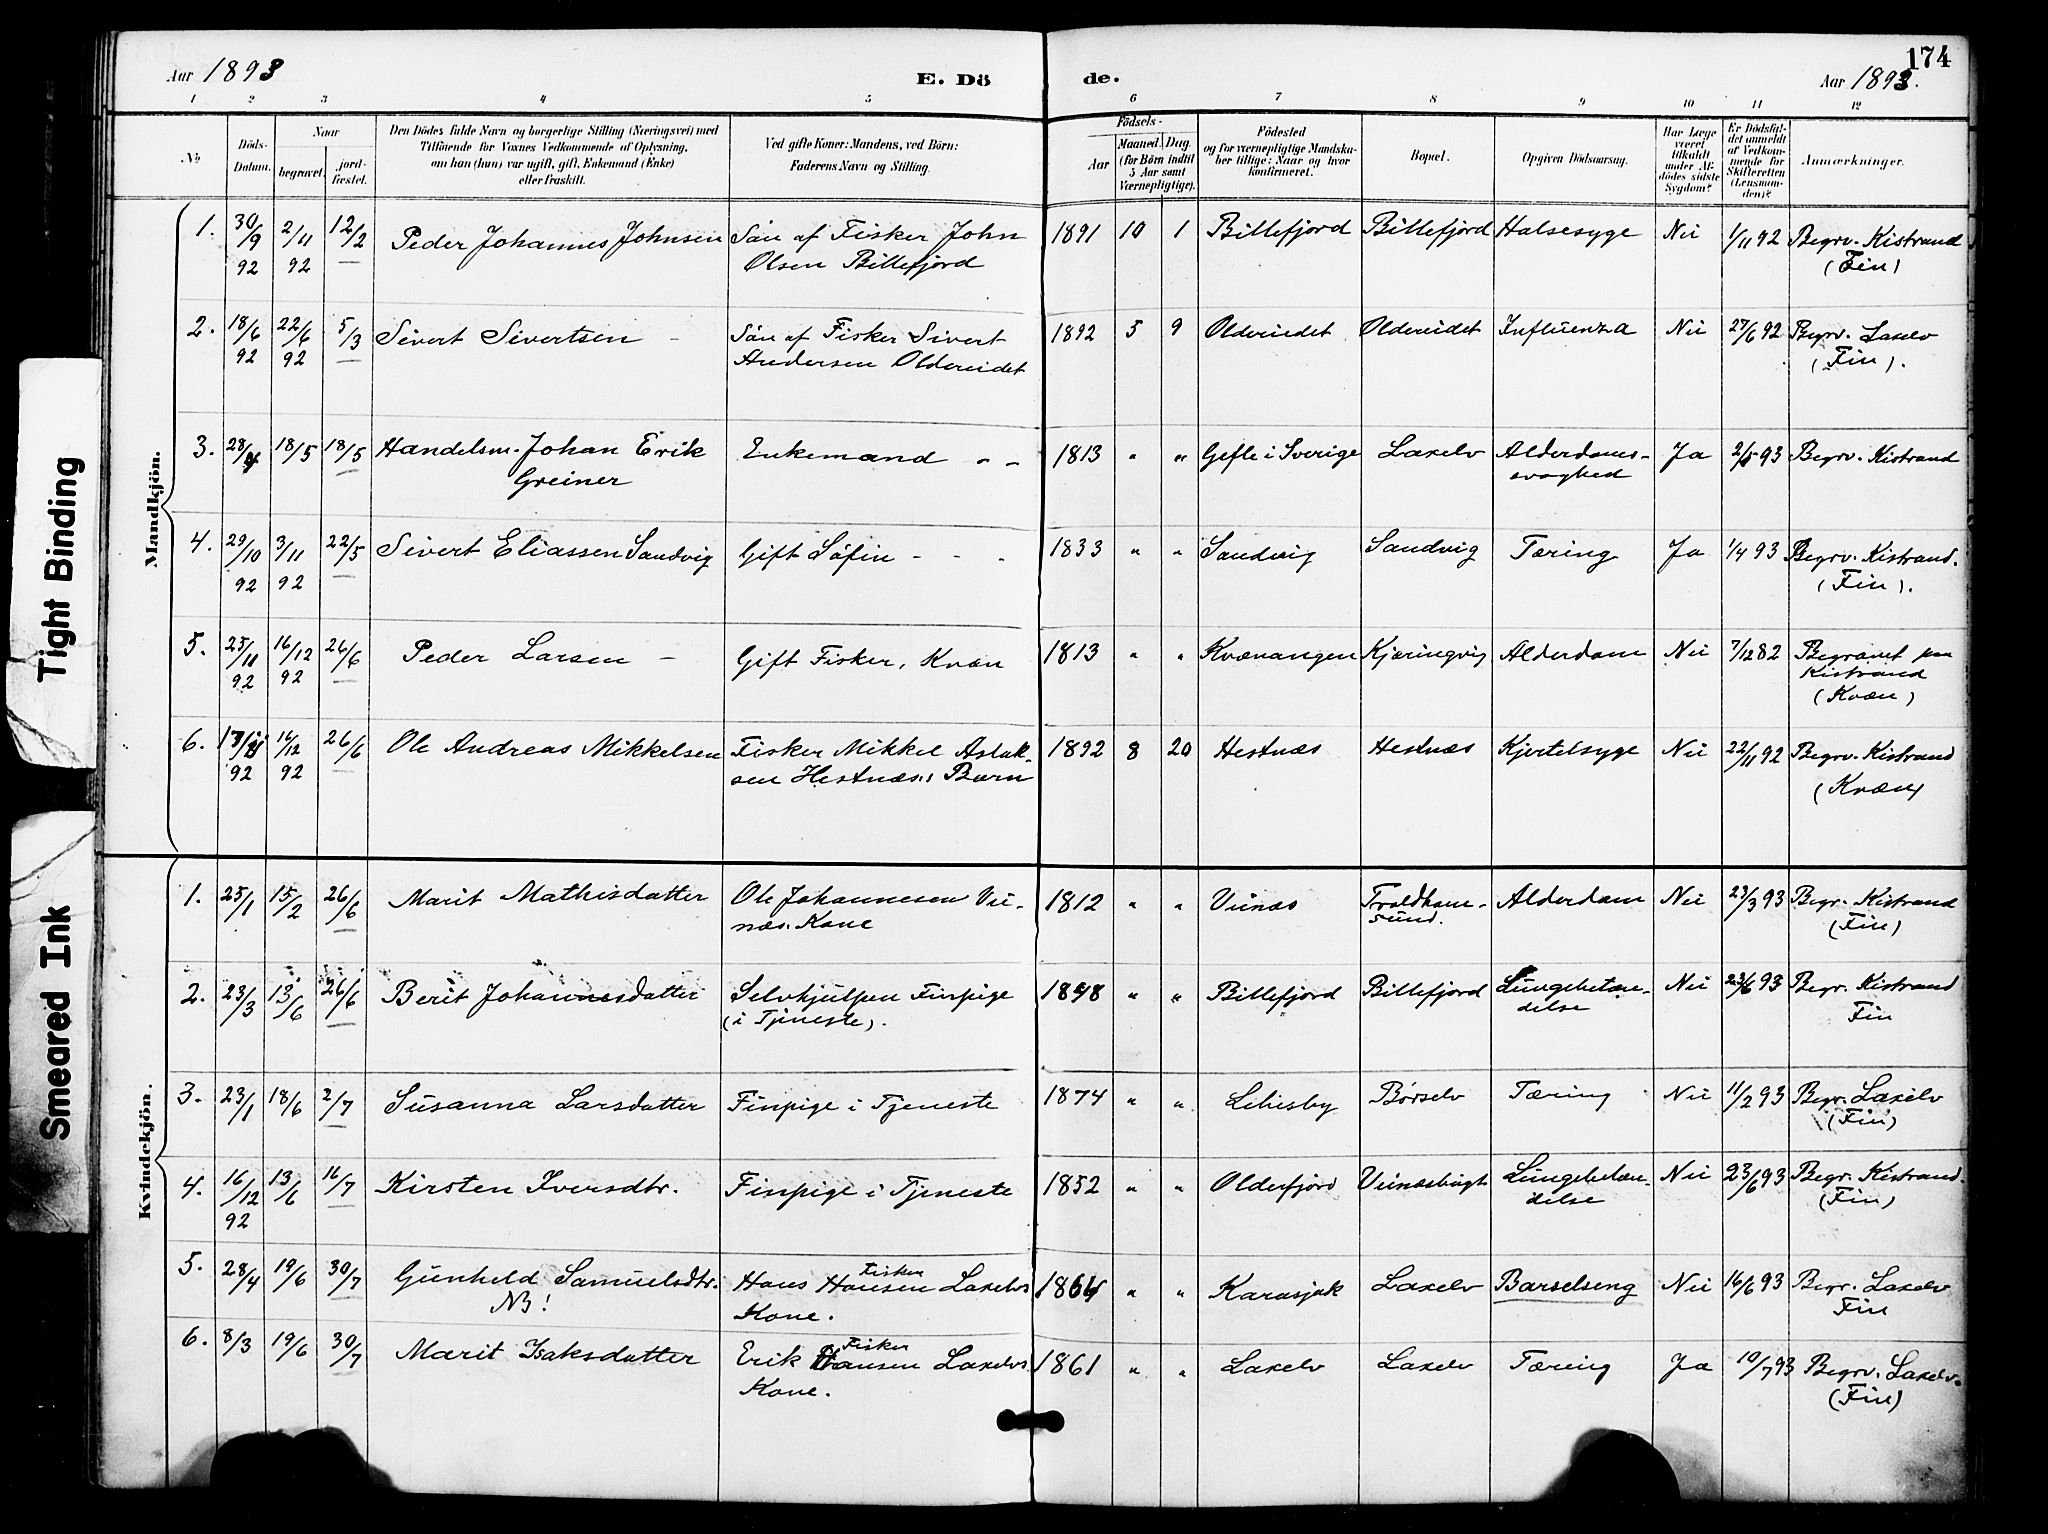 174
Aar 1893
E. Dö
de.
Aar 1893.
1 2 3 4 5 6 7 8 9 10 11 12
No
Döds-
Datum.
Naar
begravet.
jord-
fæstet.
Den Dödes fulde Navn og borgerlige Stilling (Næringsvei) med
Tilföiende for Voxnes Vedkommende af Oplysning,
om han (hun) var ugift, gift, Enkemand (Enke)
eller fraskilt.
Ved gifte Koner: Mandens, ved Börn:
Faderens Navn og Stilling.
Födsels-
Aar
Maaned. Dag.
(for Börn indtil
5 Aar samt
Værnepligtige).
Födested
og for værnepligtige Mandska-
ber tillige: Naar og hvor
konfirmeret.
Bopæl.
Opgiven Dödsaarsag.
Har Læge
været
tilkaldt
under Af-
dödes sidste
Sygdom?
Er Dödsfal-
det anmeldt
af Vedkom-
mende for
Skifteretten
(Lensman-
den)?
Anmærkninger.
Mandkjön.
1. 30/9 2/11 12/2 Peder Johannes Johnsen Sön af Fisker John 1891 10 1 Billefjord Billefjord Halsesyge Nei 1/11 92 Begrv. Kistrand
92 92 Olsen Billefjord (Fin)
2. 18/6 22/6 5/3 Sivert Sivertsen - Sön af Fisker Sivert 1892 5 9 Oldereidet Oldereidet Influenza Nei 27/6 92 Begrv. Laxelv
92 92 Andersen Oldereidet (Fin).
3. 28/4 18/5 18/5 Handelsm. Johan Erik Enkemand " - 1813 " " Gefle i Sverige Laxelv Alderdoms- Ja 2/5 93 Begrv. Kistrand
Greiner svaghed
4. 29/10 3/11 22/5 Sivert Eliassen Sandvig Gift Söfin - - - 1833 " " Sandvig Sandvig Tæring Ja 1/4 93 Begrv. Kistrand.
92 92 (Fin).
5. 25/11 16/12 26/6 Peder Larsen - Gift Fisker, Kvæn 1813 " " Kvænangen Kjæringvig Alderdom Nei 7/12 82 Begravet paa
92 92 Kistrand
(Kvæn)
6. 16/12 26/6 Ole Andreas Mikkelsen Fisker Mikkel Aslak- 1892 8 20 Hestnæs Hestnæs Kjertelsyge Nei 22/11 92 Begrv. Kistrand
92 92 sen Hestnæs's Barn (Kvæn)
Kvindekjön.
1. 25/1 15/2 26/6 Marit Mathisdatter Ole Johannesen Vei- 1812 " " Veinæs Troldham- Alderdom Nei 23/3 93 Begr. Kistrand
næs. Kone sund. (Fin)
2. 23/3 13/6 26/6 Berit Johannesdatter Selvhjulpen Finpige 1848 " " Billefjord Billefjord Lungebetæn- Nei 23/6 93 Begr. Kistrand
(i Tjeneste). delse Fin
3. 23/1 18/6 2/7 Susanna Larsdatter Finpige i Tjeneste 1874 " " Lebesby Børselv Tæring Nei 11/2 93 Begr. Laxelv
(Fin)
4. 16/12 13/6 16/7 Kirsten Iversdtr. Finpige i Tjeneste 1852 " " Olderfjord Veinæsbugt Lungebetæn- Nei 23/6 93 Begr. Kistrand.
92 delse (Fin)
5. 28/4 19/6 30/7 Gunhild Samuelsdtr. Hans Hansen Fisker Laxelvs 1864 " " Karasjok Laxelv Barselseng Nei 16/6 93 Begr. Laxelv
NB! Kone. Fin
6. 8/3 19/6 30/7 Marit Isaksdatter Erik Hansen Fisker Laxelvs 1861 " " Laxelv Laxelv Tæring Ja 10/7 93 Begrv. Laxelv.
Kone. (Fin)
Tight Binding
Smeared Ink